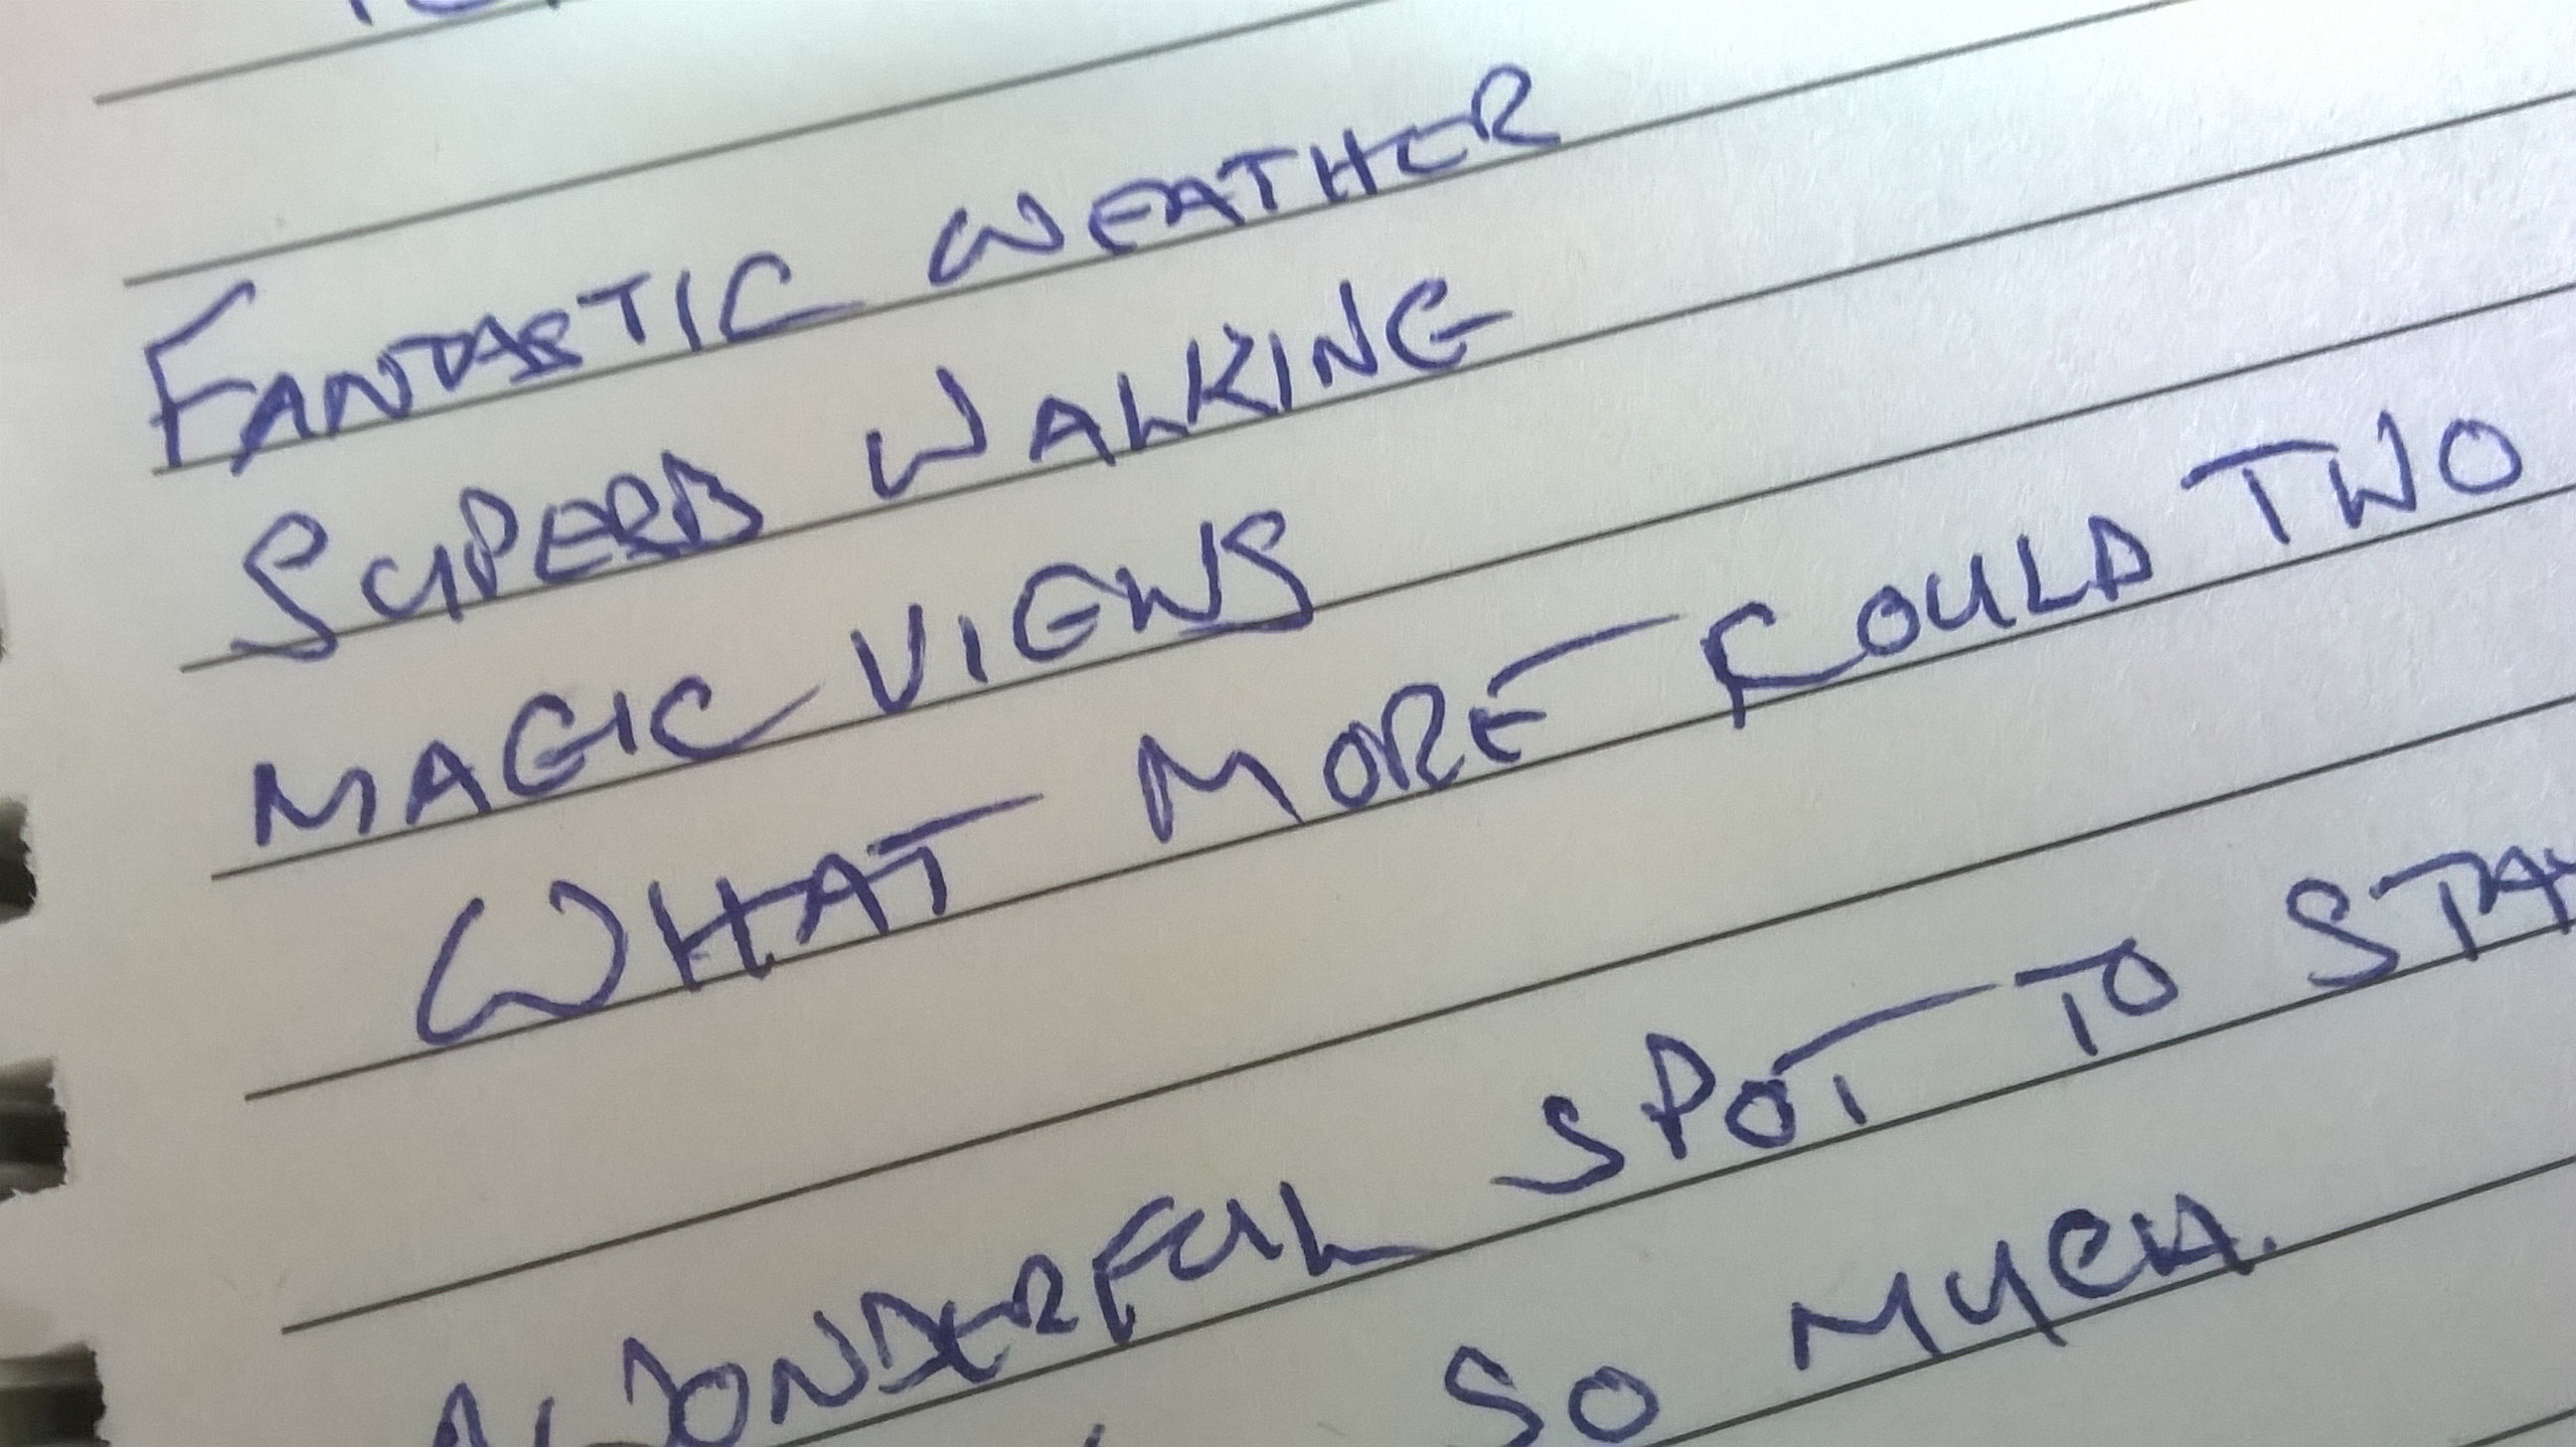 FANTASTIC WEATHER
SUPERB WALKING
MAGIC VIEWS
WHAT MORE COULD TWO
WONDERFUL SPOT TO STAY
SO MUCH.